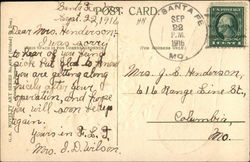 POST CARD.
Santa Fe
Sept. 22, 1916
Dear Mrs. Henderson:
I was sorry
to hear of you being
sick but glad to know
you are getting along
nicely after your
operation, and hope
you will soon be up
again.
Yours in F. L. T.
Mrs. J. D. Wilson.
SANTA FE
SEP
P.M.
1916
MO.
Mrs. J. S. Henderson,
616 Range Line St.,
Columbia,
Mo.